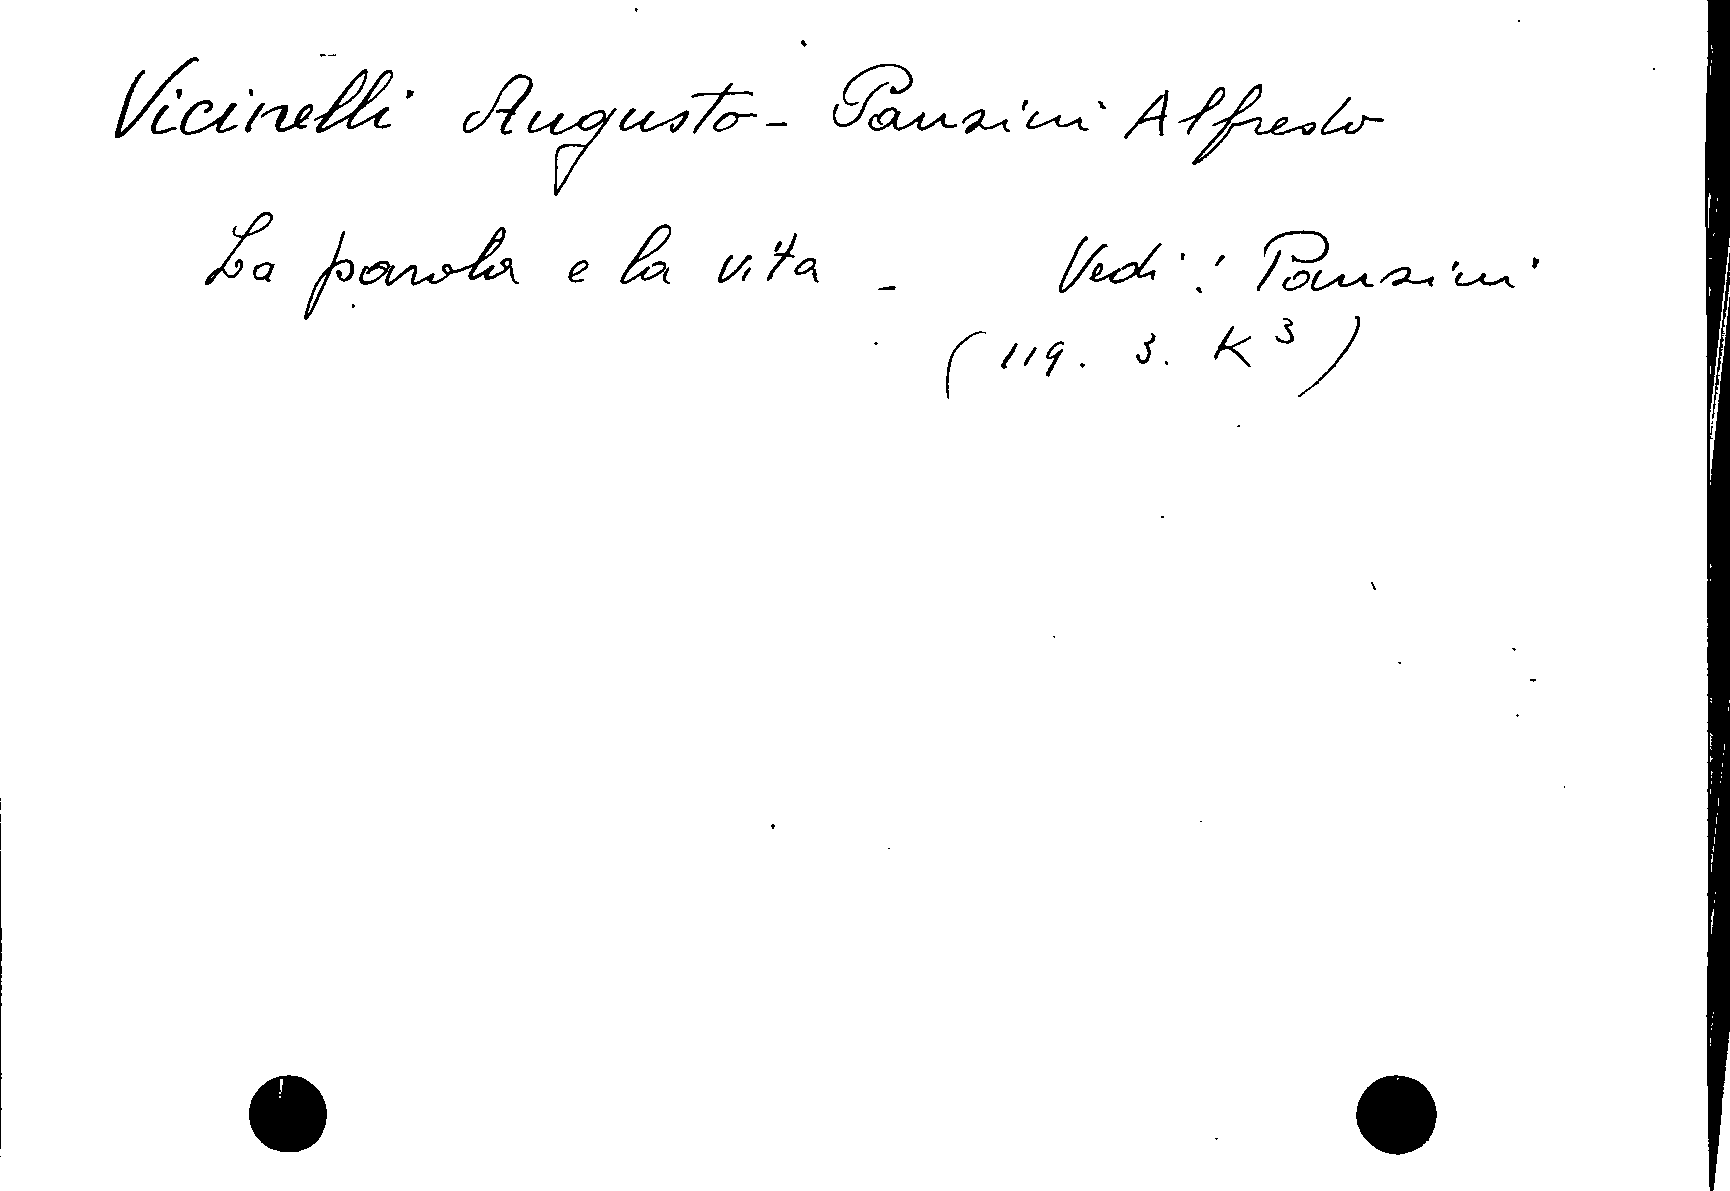 Vicinelli Augusto - Panzini Alfredo
La parola e la vita - Vedi: Panzini
(119. 3. K³)